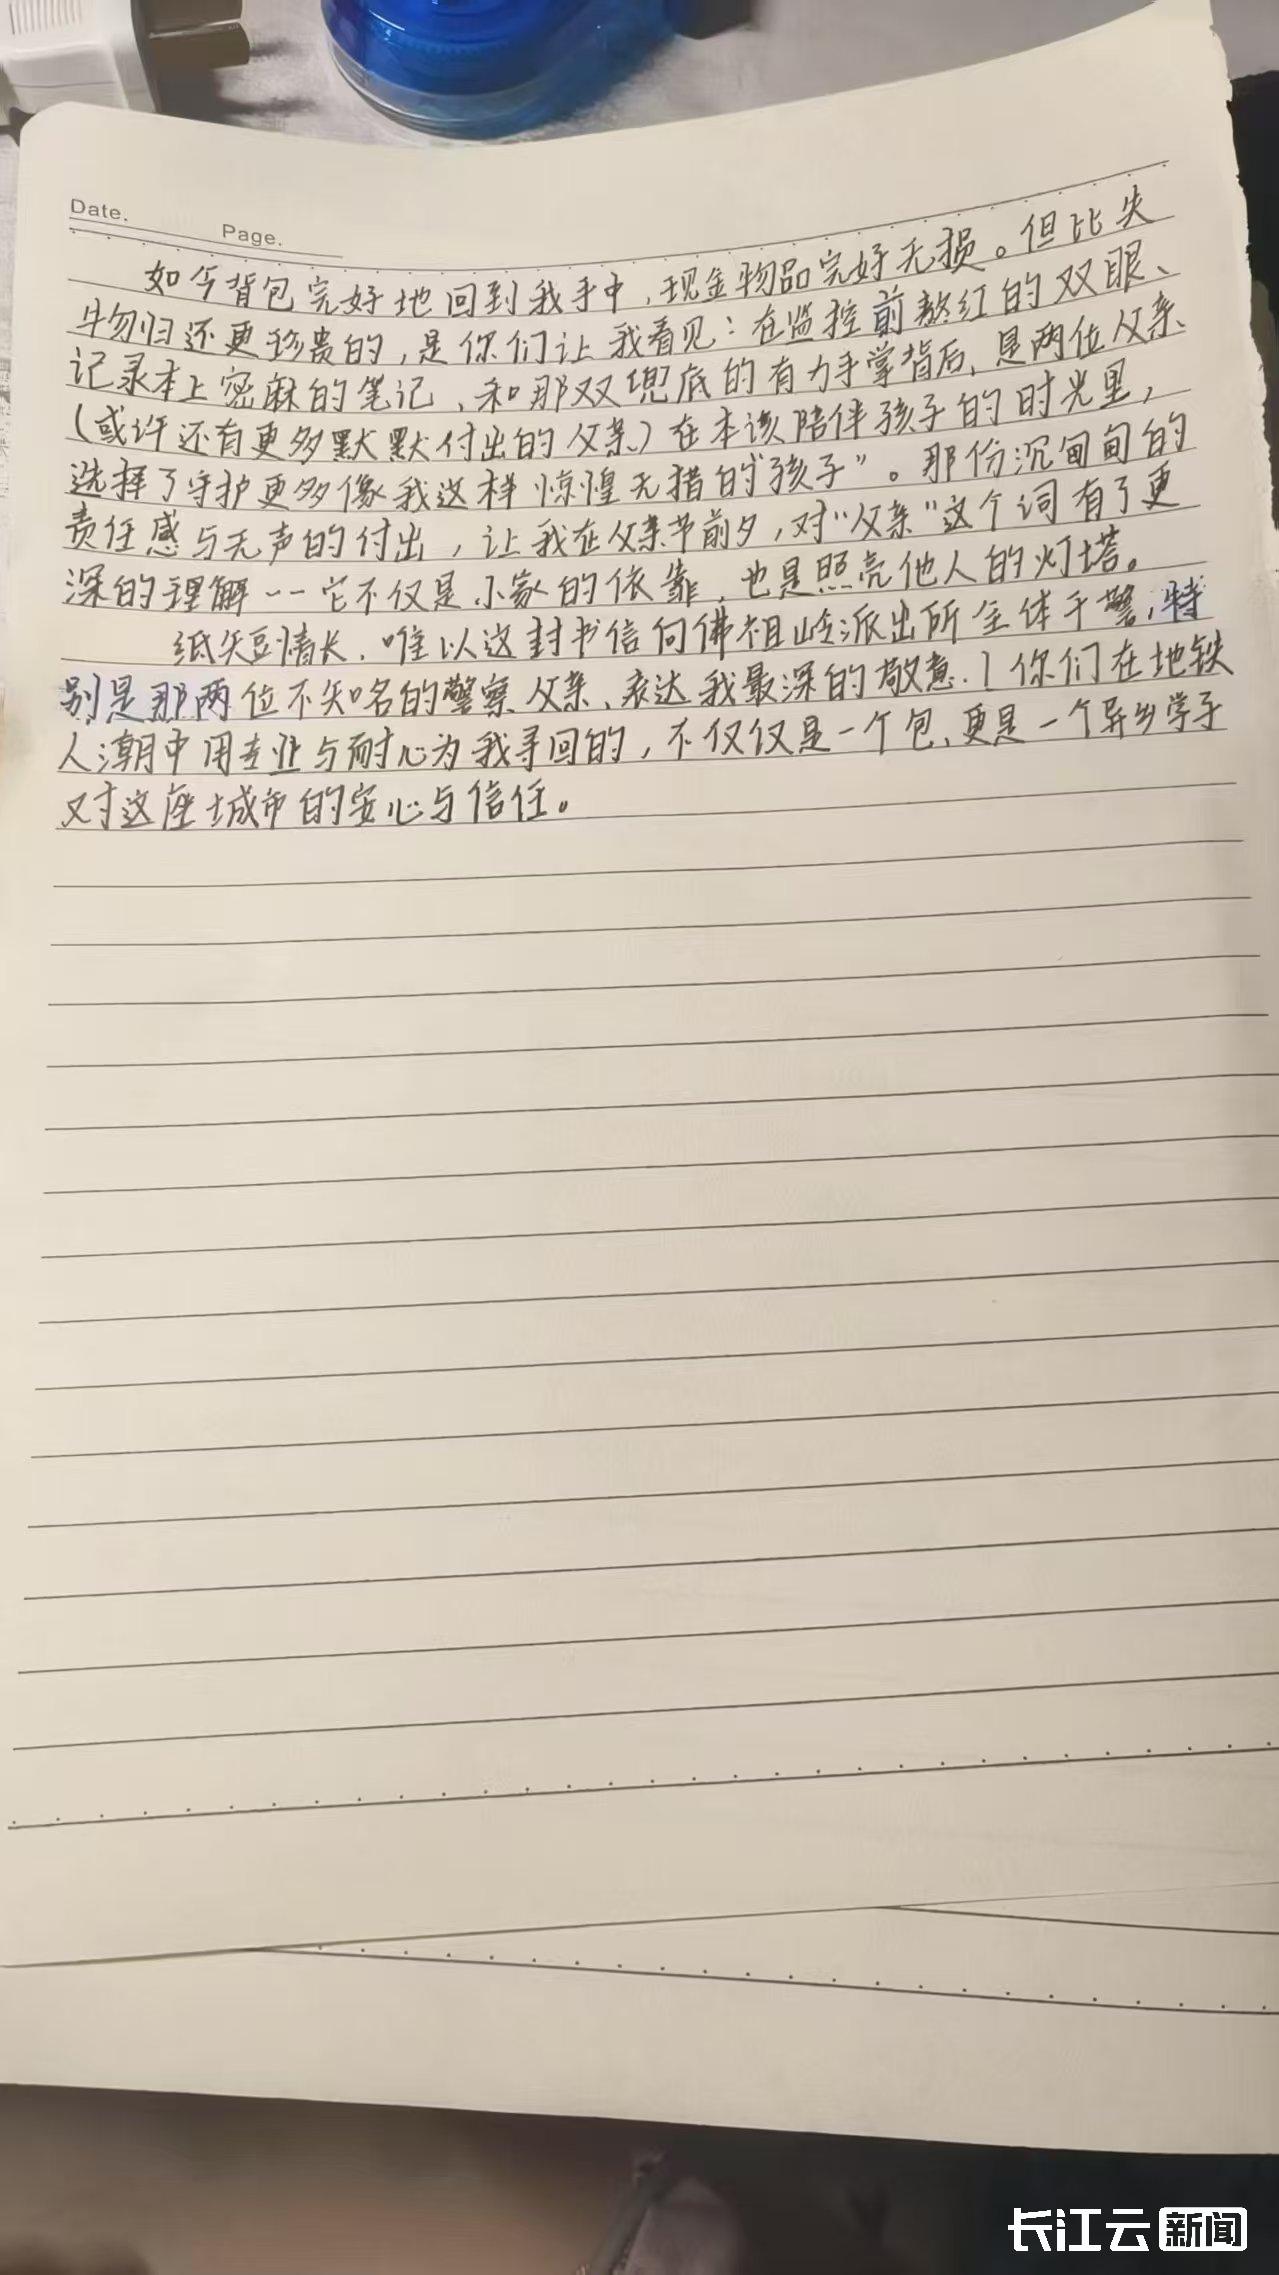 Date.
Page.
如今背包完好地回到我手中，现金物品完好无损。但比失
物归还更珍贵的，是你们让我看见：在监控前熬红的双眼、
记录本上密麻的笔记、和那双兜底的有力手掌背后，是两位父亲
（或许还有更多默默付出的父亲）在本该陪伴孩子的时光里，
选择了守护更多像我这样惊惶无措的“孩子”。那份沉甸甸的
责任感与无声的付出，让我在父亲节前夕，对“父亲”这个词有了更
深的理解--它不仅是小家的依靠，也是照亮他人的灯塔。
纸短情长，唯以这封书信向佛祖岭派出所全体干警，特
别是那两位不知名的警察父亲、表达我最深的敬意！你们在地铁
人潮中用专业与耐心为我寻回的，不仅仅是一个包、更是一个异乡学子
对这座城市的安心与信任。
长江云新闻